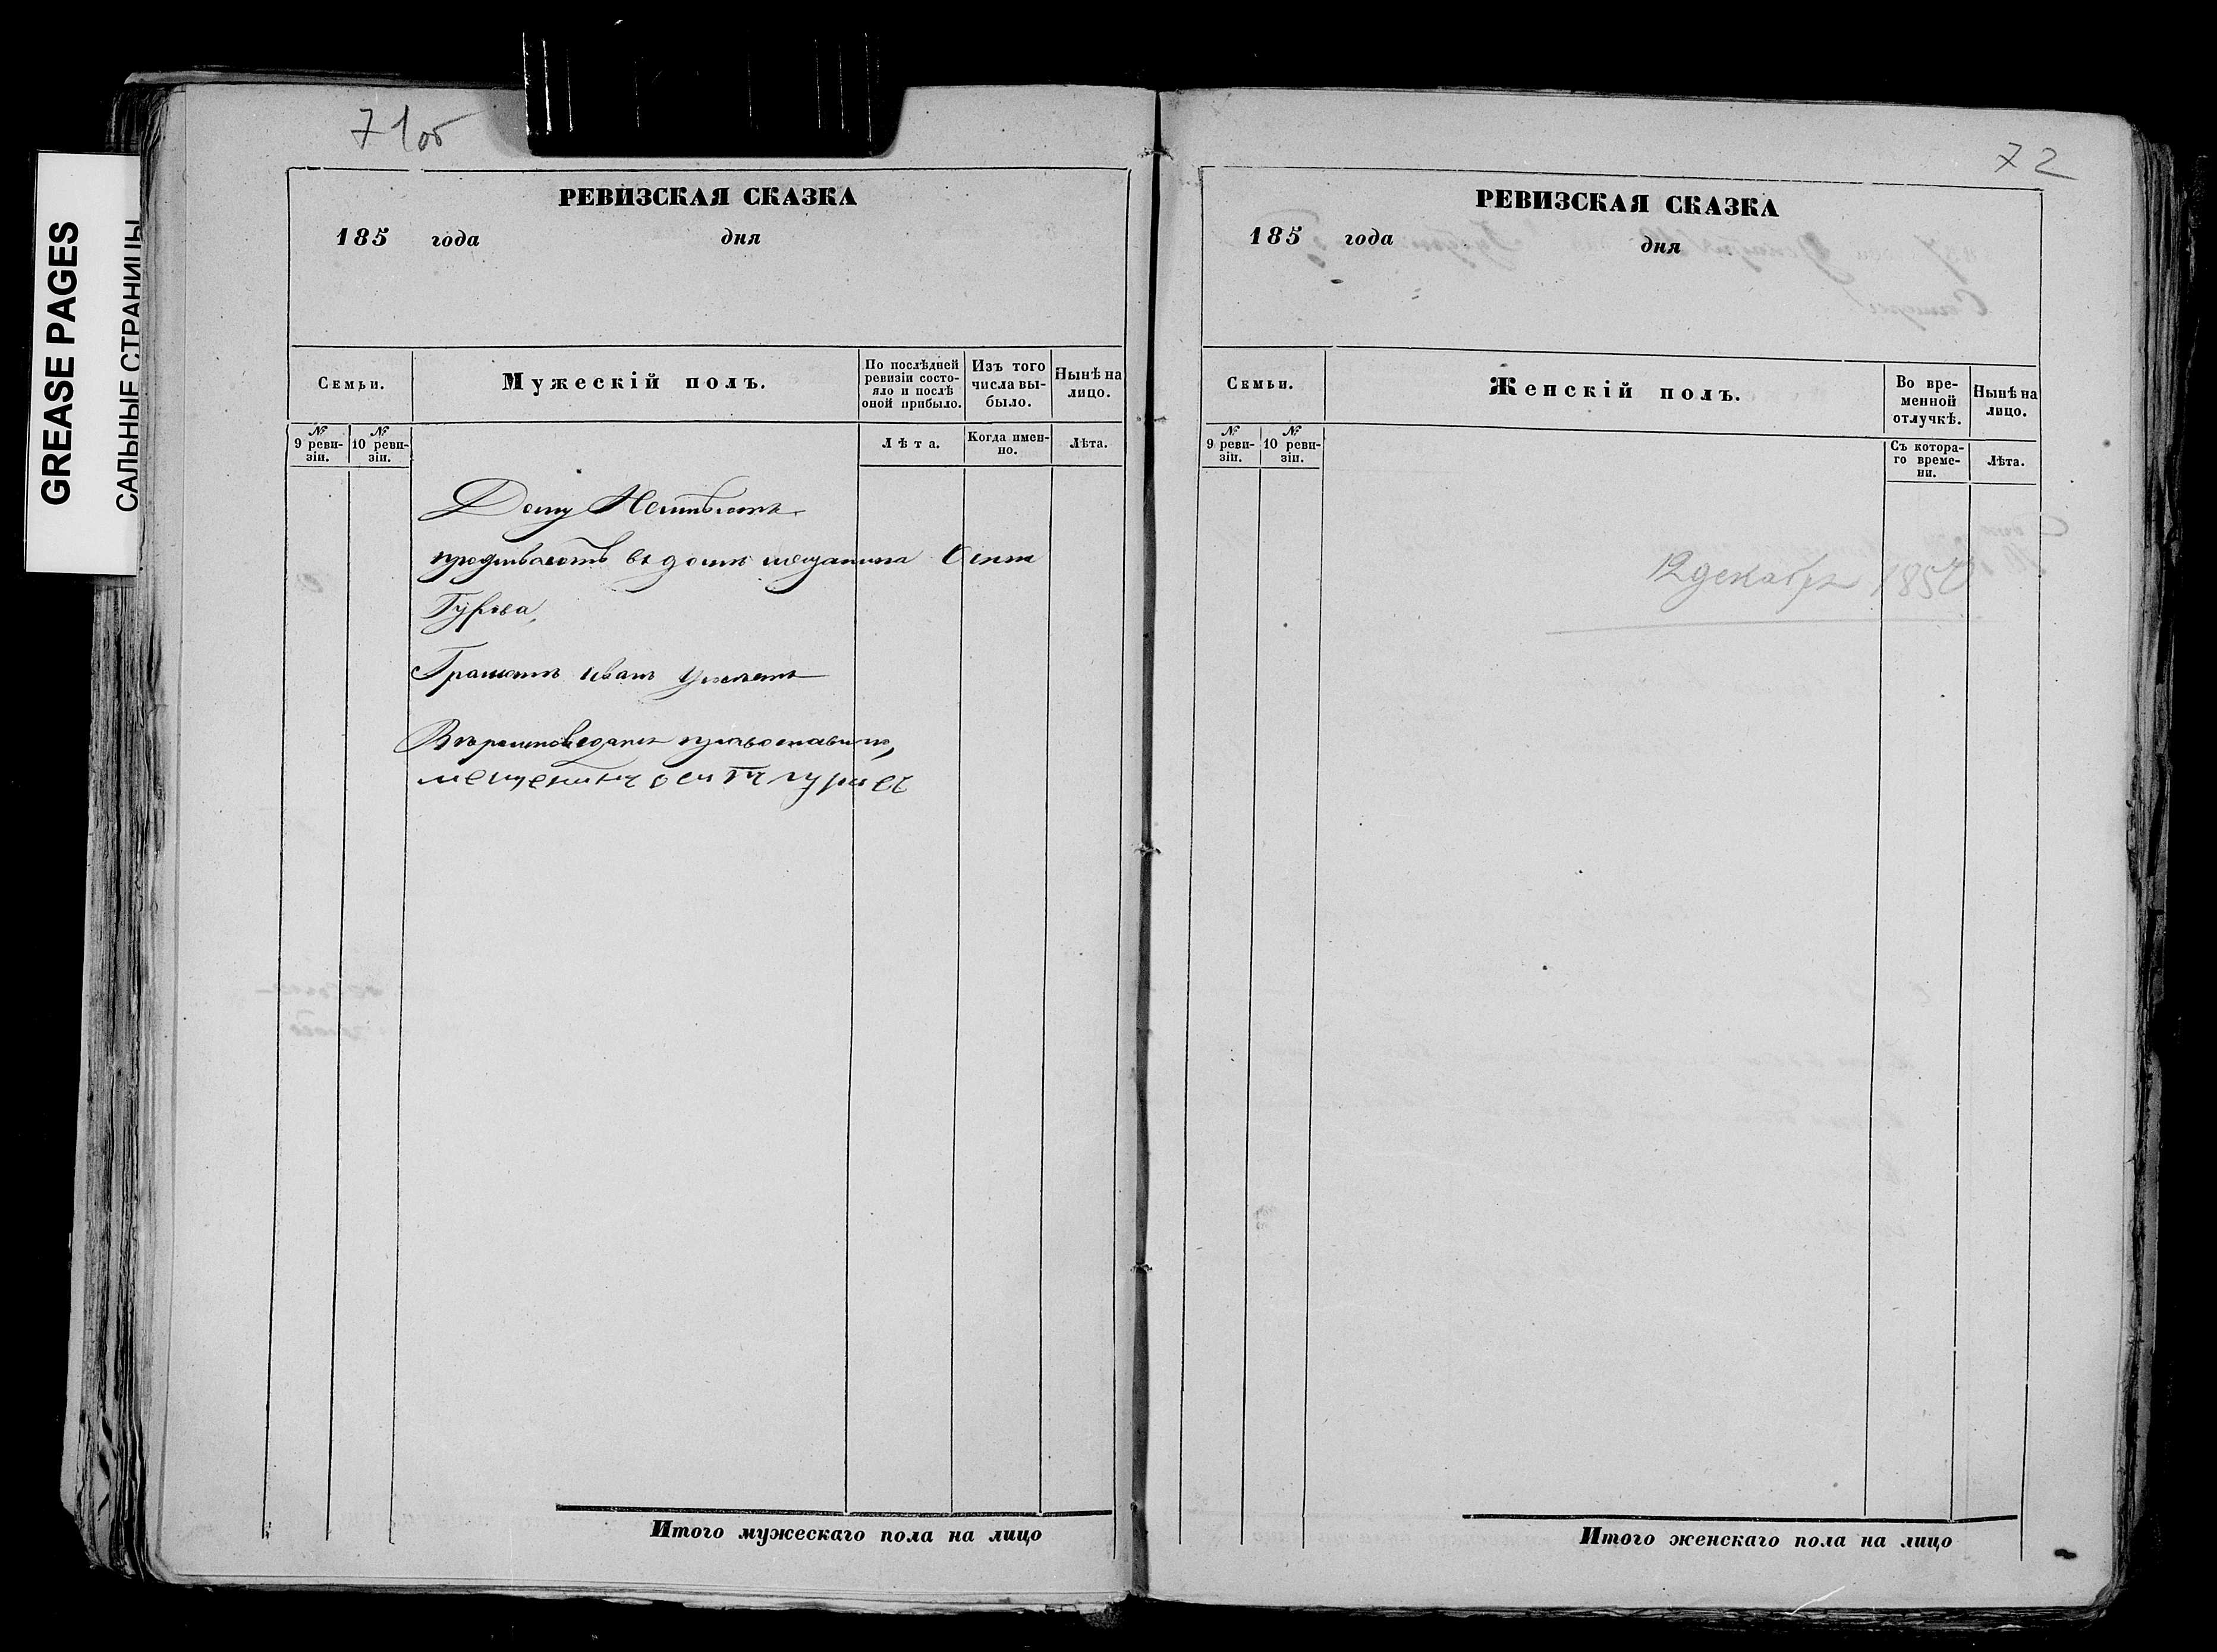 GREASE PAGES
САЛЬНЫЕ СТРАНИЦЫ
71об
РЕВИЗСКАЯ СКАЗКА
185 года дня
Семьи.
Мужескій полъ.
По послѣдней ревизіи состояло и послѣ оной прибыло.
Изъ того числа выбыло.
Нынѣ на лицо.
№ 9 ревизіи.
№ 10 ревизіи.
Лѣта.
Когда именно.
Лѣта.
Дому
проживаетъ въ домѣ мещанина
Гурьва,
Грамотѣ Иванъ умѣетъ
Вѣроисповеданія
мещенинъ осипъ гуриевъ
Итого мужескаго пола на лицо
72
РЕВИЗСКАЯ СКАЗКА
185 года дня
Семьи.
Женскій полъ.
Во временной отлучкѣ.
Нынѣ на лицо.
№ 9 ревизіи.
№ 10 ревизіи.
Съ котораго времени.
Лѣта.
12 декабря 1857
Итого женскаго пола на лицо